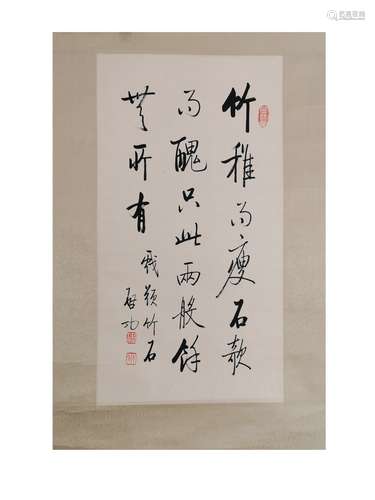 竹稚而瘦石欹
而醜只此兩般餘
無所有
戲題竹石
启功